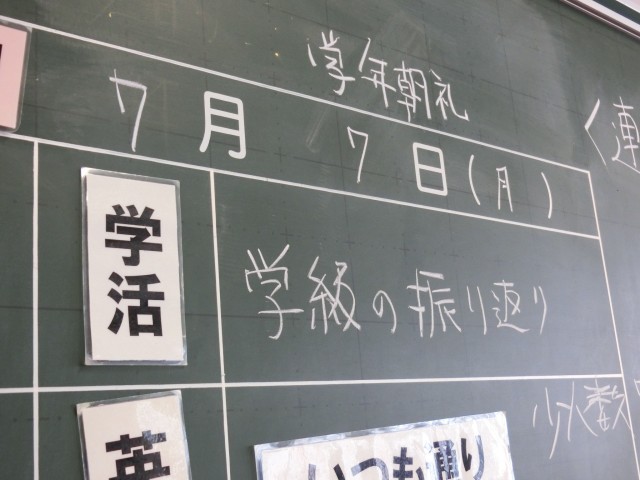 学年朝礼
7月7日(月)
く連
学活
学級の振り返り
少人数
英
いつも通り